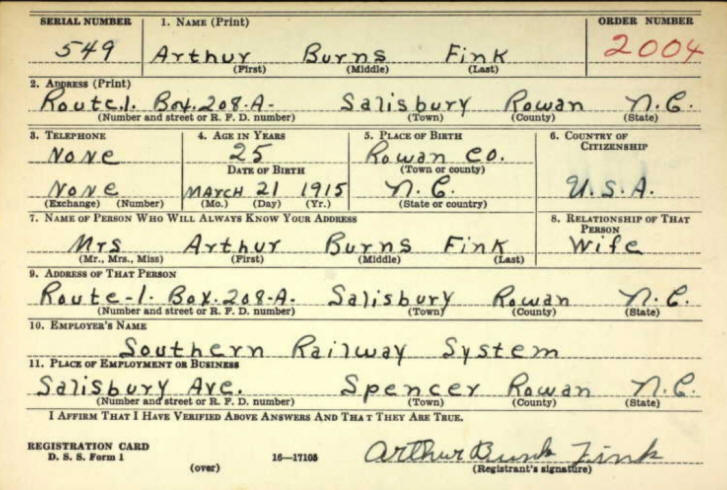 SERIAL NUMBER 1. NAME (Print) ORDER NUMBER
549 Arthur Burns Fink 2004
(First) (Middle) (Last)
2. ADDRESS (Print)
Route.1. Box.208-A- Salisbury Rowan N.C.
(Number and street or R. F. D. number) (Town) (County) (State)
3. TELEPHONE 4. AGE IN YEARS 5. PLACE OF BIRTH 6. COUNTRY OF
CITIZENSHIP
None 25 Rowan Co.
DATE OF BIRTH (Town or county)
None MARCH 21 1915 N.C. U.S.A.
(Exchange) (Number) (Mo.) (Day) (Yr.) (State or country)
7. NAME OF PERSON WHO WILL ALWAYS KNOW YOUR ADDRESS 8. RELATIONSHIP OF THAT
PERSON
Mrs Arthur Burns Fink Wife
(Mr., Mrs., Miss) (First) (Middle) (Last)
9. ADDRESS OF THAT PERSON
Route-1. Box.208-A. Salisbury Rowan N.C.
(Number and street or R. F. D. number) (Town) (County) (State)
10. EMPLOYER'S NAME
Southern Railway System
11. PLACE OF EMPLOYMENT OR BUSINESS
Salisbury Ave. Spencer Rowan N.C.
(Number and street or R. F. D. number) (Town) (County) (State)
I AFFIRM THAT I HAVE VERIFIED ABOVE ANSWERS AND THAT THEY ARE TRUE.
REGISTRATION CARD
D. S. S. Form 1 16—17105 Arthur Burns Fink
(over) (Registrant's signature)